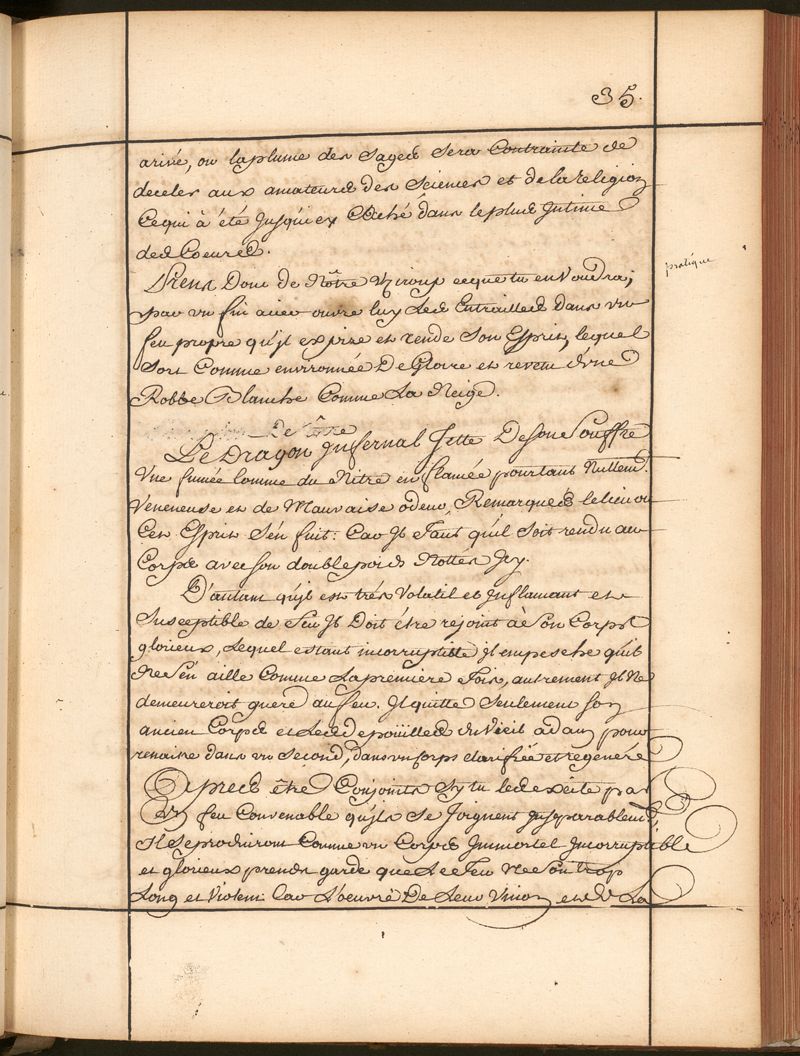 35.
arivé, ou laplume des Sages Sera Contrainte de
deceler aux amateurs des Sciences et de la religion
Cequi à été Jusqu'icy Caché dans leplus Intime
des Coeures.
pratique
Prens Donc de Nôtre cequetu en Voudra;
par un fin acier ouvre luy Les Entrailles Dans un
feu propre qu'jl expire et rende Son Esprit, lequel
Sort Comme environnée De Gloire et revetu d'vne
Robbe Blanche Comme La Neige.
De Nôtre
Le Dragon Infernal Jette De Son Souffre
Vne fumée Comme du Nitre en flamée pourtant Nullem.t
Veneneuse et de Mauvaise odeur, Remarqués lelieu ou
Cet Esprit S'én fuit. Car Jl Faut qu'il Soit rendu au
Corps avec Son double poids Notter Icy.
D'autant qu'jl est trés Volatil et Inflamant et
Susceptible de feu Jl Doit étre rejoint à Son Corps
glorieux, Lequel estant incorruptible jl empesche qu'il
Ne S'én aille Comme La premiere Fois, autrement Jl Ne
demeureroit guere au feu. Jl quitte Seulement Son
ancien Corps et Les depoüilles du Vieil adam pour
renaitre dans un Second, dans un Corps clarifiée et regeneré
Apres être Conjoints Sy tu les excite par
Vn feu Convenable qu'jls Se Joignent Inseparablem.t,
Il Se produiront Comme un Corps Immortel Incorruptible
et glorieux prends garde que Le Feu Ne Soit trop
Long et Violent Car L'oeuvre De Leur Vnion et de La